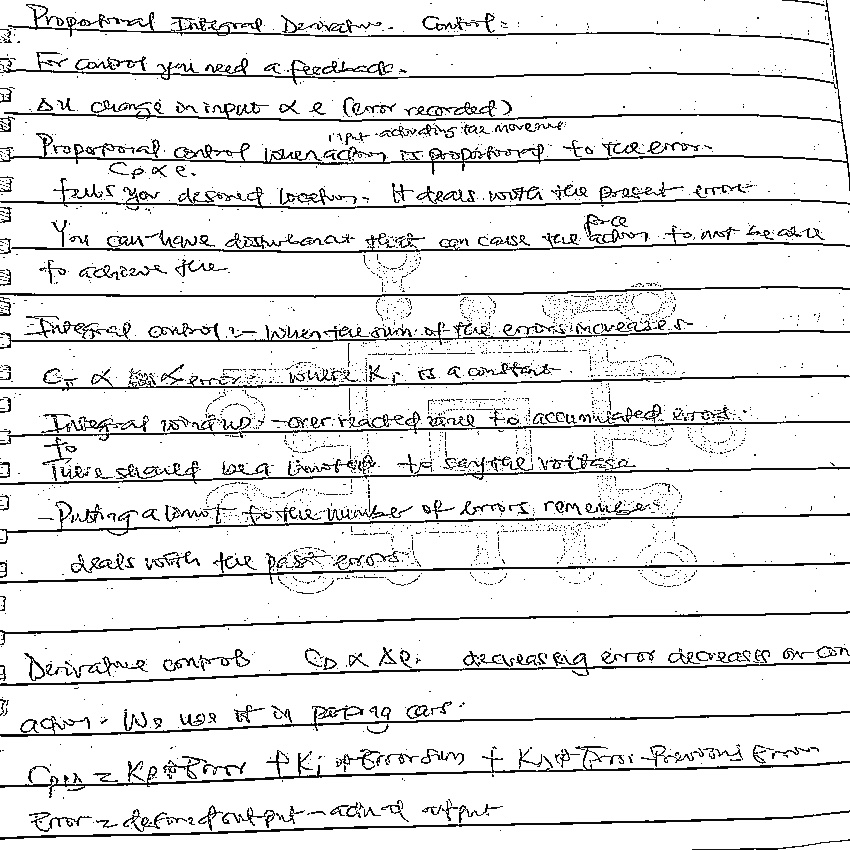 Proportional Integral Derivative Control:
For control you need a feedback.
ΔU change in input α e (error recorded)
input activating the movement
Proportional control when action is proportional to the error.
Cp α e.
tells you desired location. It deals with the present error
force
You can have disturbances that can cause the action to not be able
to achieve the
Integral control :- When the sum of the errors increases
C_I α error where Ki is a constant.
Integral wind up - over reacted to accumulated error.
to
There should be a limit to say the voltage
- Putting a limit to the number of errors remember
deals with the past errors
Derivative controls C_D α Δe. decreasing error decreases or con
action. We use it in parking cars.
C_PID = Kp * Error + Ki * Error sum + KD * Error - Previous Error
Error = desired output - actual output